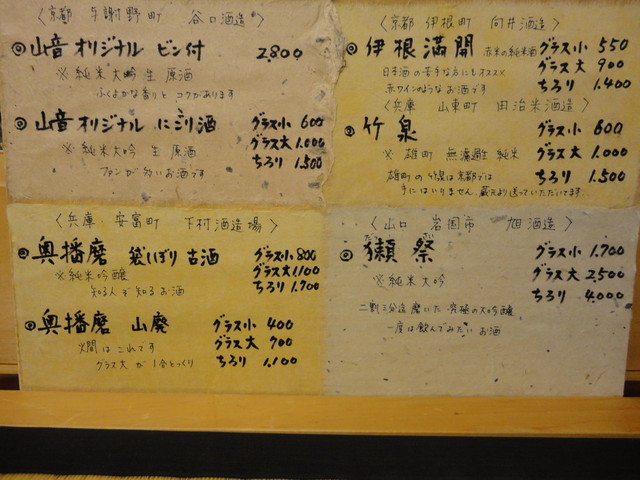 〈京都 与謝野町 谷口酒造〉
◎山音オリジナル ビン付 2,800
※純米大吟 生 原酒
ふくよかな香りと コクがあります
◎山音オリジナル にごり酒 グラス小 600
※純米大吟 生 原酒 グラス大 1.000
ファンが多いお酒です ちろり 1.500
〈京都 伊根町 向井酒造〉
◎伊根満開 赤米の純米酒 グラス小 550
日本酒の苦手な方にもオススメ グラス大 900
赤ワインのような お酒です ちろり 1.400
〈兵庫 山東町 田治米酒造〉
◎竹泉 グラス小 600
※ 雄町 無濾過生 純米 グラス大 1.000
雄町の竹泉は京都では ちろり 1.500
手にはいりません 蔵元より送っていただいてます
〈兵庫 安富町 下村酒造場〉
◎奥播磨 袋しぼり 古酒 グラス小 800
※純米吟醸 グラス大 1,100
知る人ぞ知る お酒 ちろり 1.700
◎奥播磨 山廃 グラス小 400
燗は これです グラス大 700
グラス大 が 1合とっくり ちろり 1,100
〈山口 岩国市 旭酒造〉
◎獺祭 グラス小 1.700
※純米大吟 グラス大 2,500
ちろり 4.000
二割三分迄 磨いた 究極の大吟醸
一度は飲んでみたい お酒